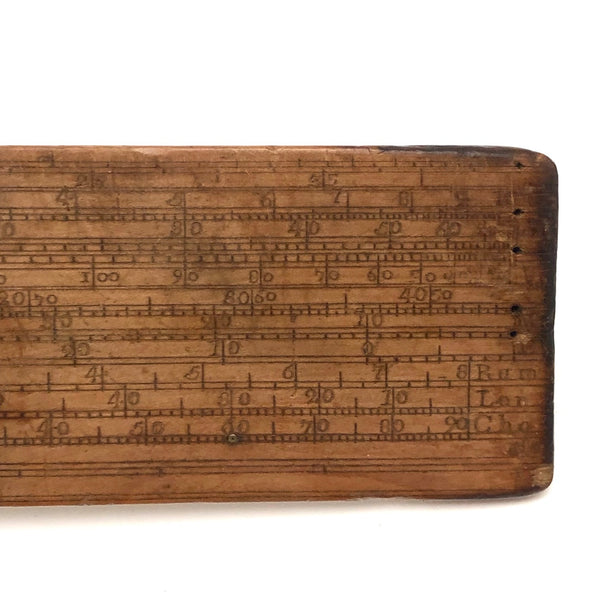 4 5 6 7 8 9
30 40 50 60
100 90 80 70 60 50
20 70 30 60 40 50
20 10
4 5 6 7 8 Rum
40 30 20 10 Lon
40 50 60 70 80 90 Cho